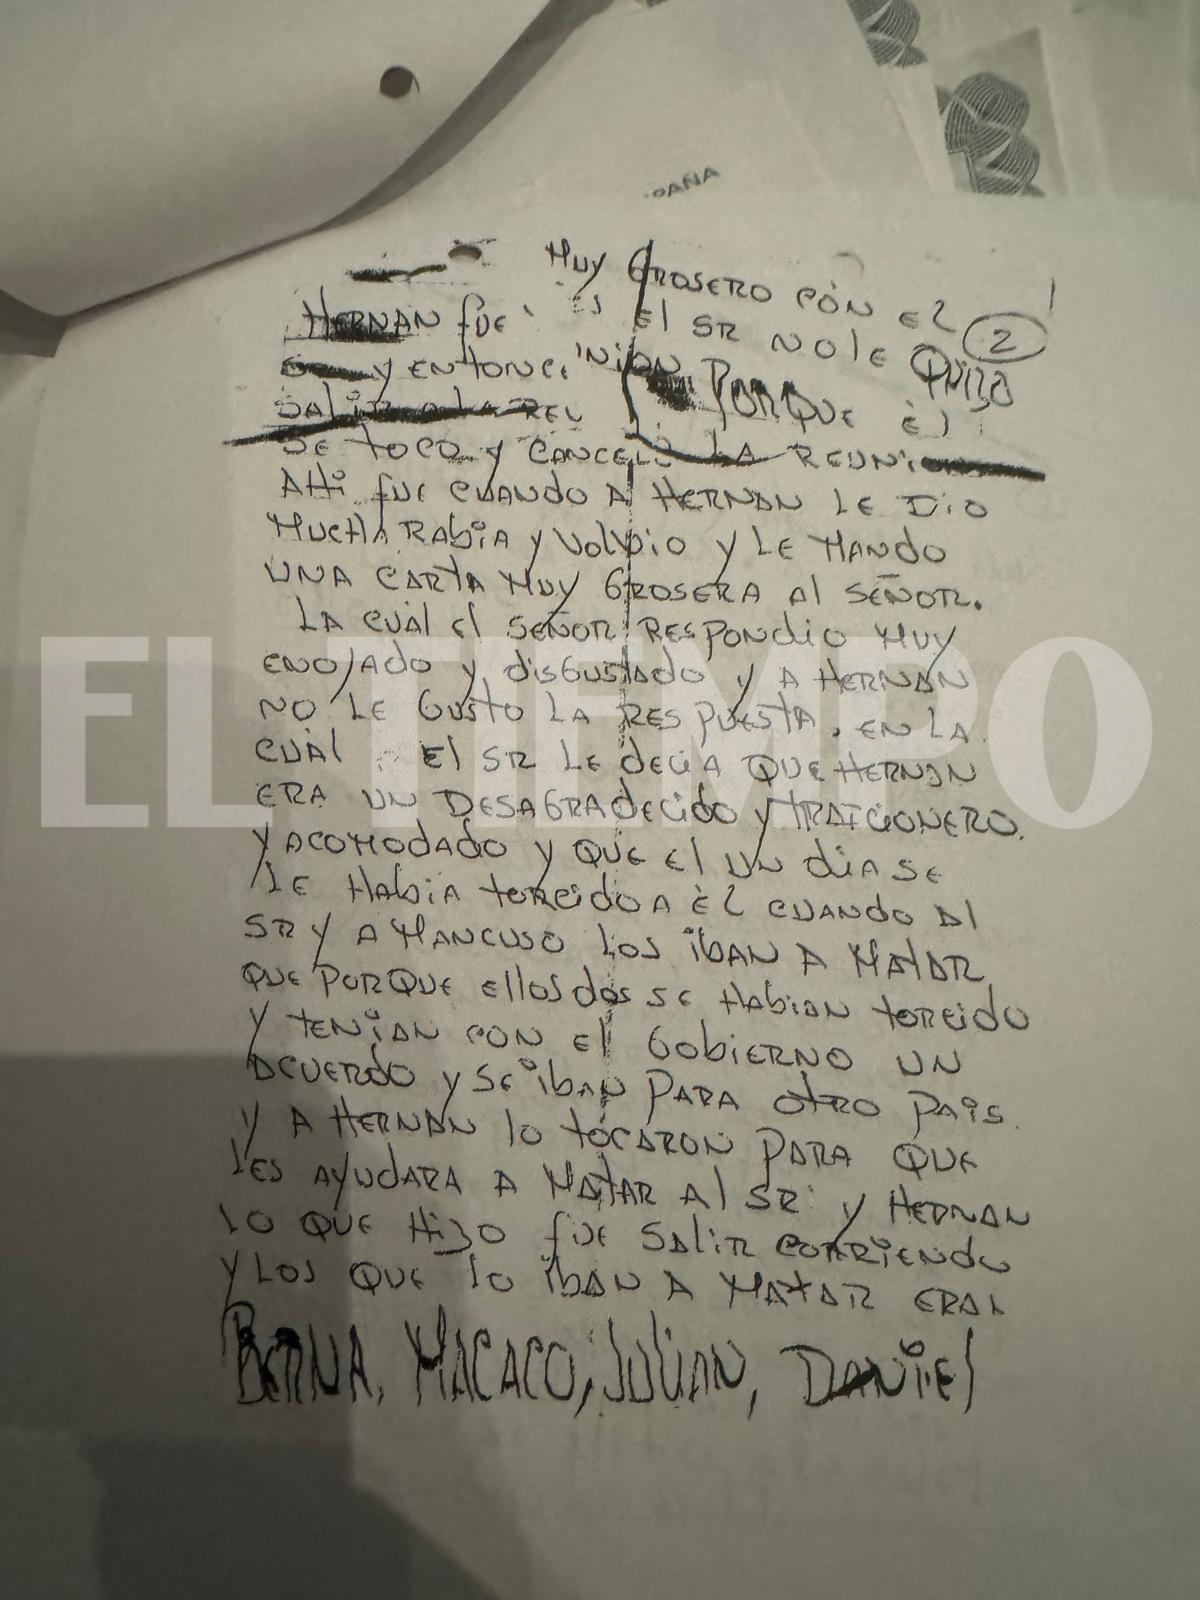 PAÑA
MUY GROSERO CON EL
2
HERNAN FUE ES EL SR NO LE QUIZO
Y ENTONC NION PORQUE ÉL
SALIR A LA REU
SE TOCO Y CANCELO LA REUNI
AHI FUE CUANDO A HERNAN LE DIO
MUCHA RABIA Y VOLVIO Y LE MANDO
UNA CARTA MUY GROSERA AL SEÑOR.
LA CUAL EL SEÑOR RESPONDIO MUY
ENOJADO Y DISGUSTADO Y A HERNAN
NO LE GUSTO LA RESPUESTA. EN LA
CUAL EL SR LE DECIA QUE HERNAN
ERA UN DESAGRADECIDO Y TRAICIONERO.
Y ACOMODADO Y QUE EL UN DIA SE
LE HABIA TORCIDO A ÉL CUANDO AL
SR Y A MANCUSO LOS IBAN A MATAR
QUE PORQUE ELLOS DOS SE HABIAN TORCIDO
Y TENIAN CON EL GOBIERNO UN
ACUERDO Y SE IBAN PARA OTRO PAIS.
Y A HERNAN LO TOCARON PARA QUE
LES AYUDARA A MATAR AL SR Y HERNAN
LO QUE HIZO FUE SALIR CORRIENDO
Y LOS QUE LO IBAN A MATAR ERAN
BERNA, MACACO, JULIAN, DANIEL
EL TIEMPO